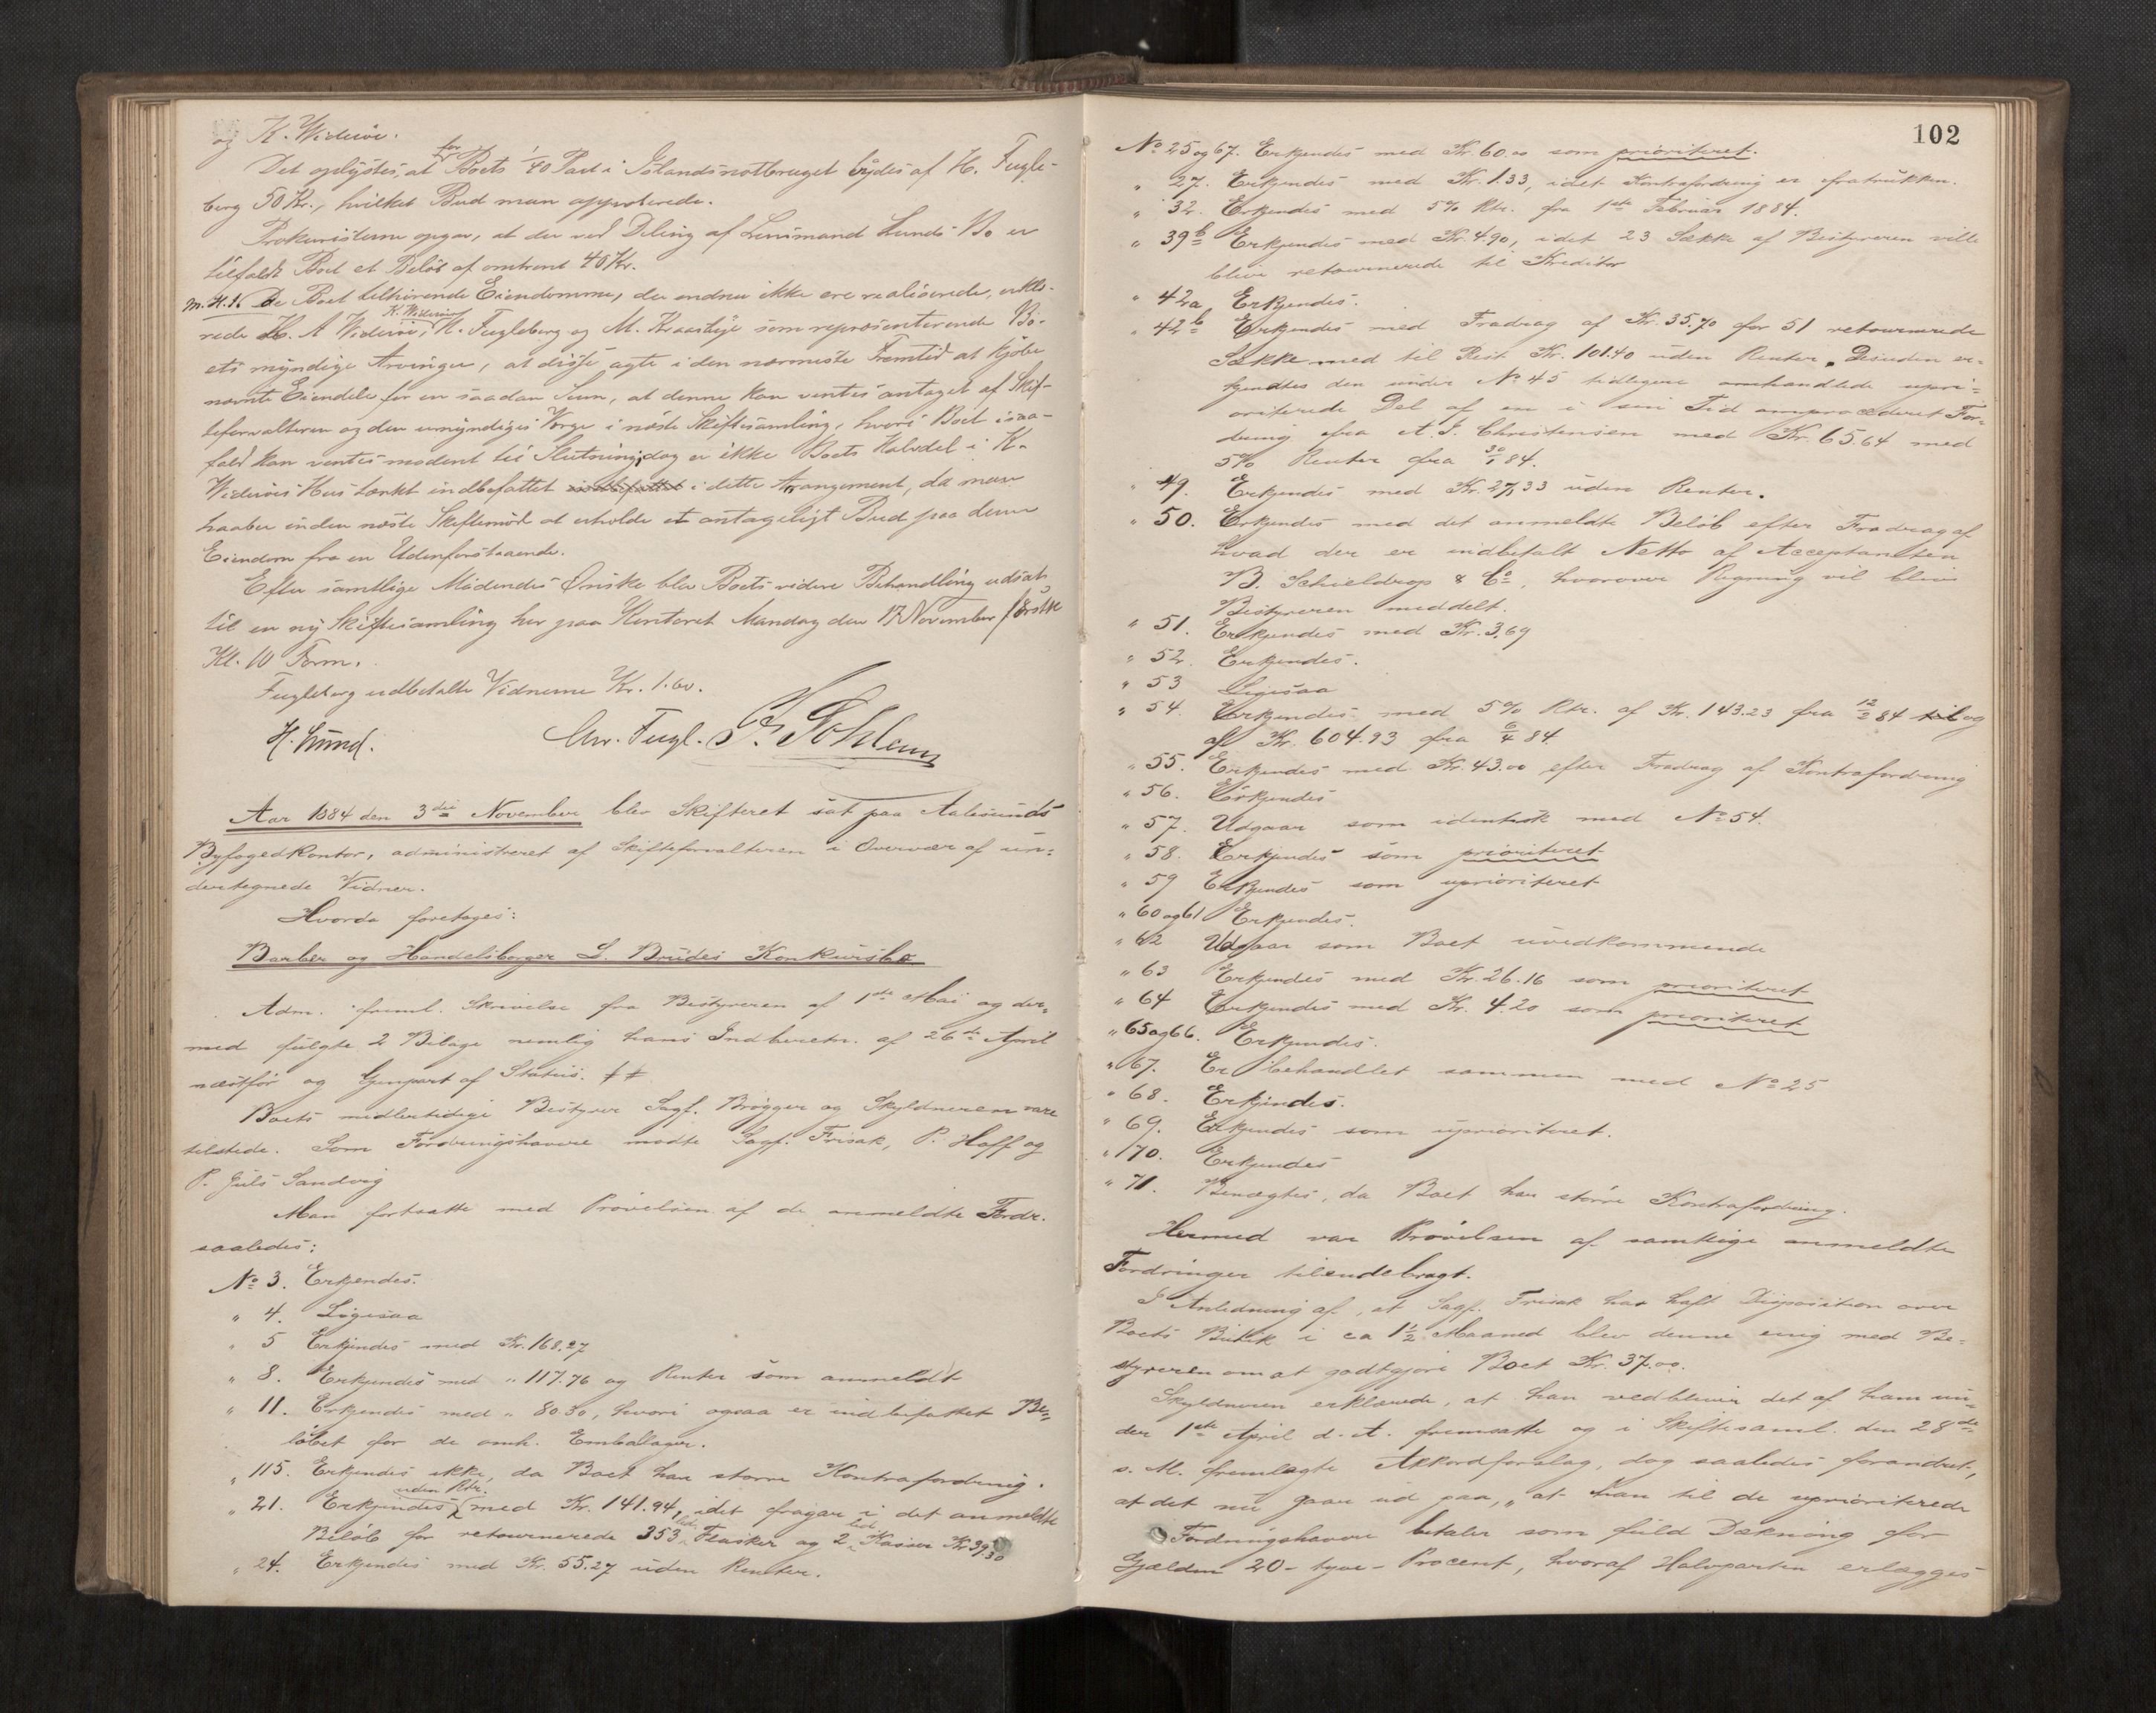 og K. Widerøe.
Det oplystes, at for Boets 1/40 Part i Islandsnotbruget bydes af H. Fugle-
berg 50 Kr., hvilket Bud man approberede.
Prokuristerne opgav, at der ved Deling af Lensmand Lunds Bo er
tilfaldt Boet et Beløb af omtrent 40 Kr.
M.H.t. de Boet tilhørende Eiendomme, der endnu ikke ere realiserede, erklæ-
rede H. A Widerøe, K. Widerøe, H. Fugleberg og M. Kraasbye som repræsenterende Bo-
ets myndige Arvinger, at disse agte i den nærmeste Fremtid at kjøbe
nævnte Eiendele for en saadan Sum, at denne kan ventes antaget af Skif-
teforvalteren og den umyndiges Værge i næste Skiftesamling, hvori Boet isaa-
fald kan ventes modent til Slutning; dog er ikke Boets Halvdel i K.
Widerøes Hus tænkt indbefattet indbefattet i dette Arrangement, da man
haaber inden næste Skiftemøde at erholde et antageligt Bud paa denne
Eiendom fra en Udenforstaaende.
Efter samtlige Mødendes Ønske blev Boets videre Behandling udsat
til en ny Skiftesamling her paa Kontoret Mandag den 17 November førstk
Kl. 10 Form.
Fugleberg udbetalte Vidnerne Kr. 1.60.
H. Lund. Chr. Fugl.
Aar 1884 den 3die November blev Skifteret sat paa Aalesunds
Byfogedkontor, administreret af Skifteforvalteren i Overvær af un-
dertegnede Vidner.
Hvorda foretoges:
Barber og Handelsborger L. Brudes Konkursbo
Adm. freml. Skrivelse fra Bestyreren af 1ste Mai og der-
med fulgte 2 Bilage nemlig hans Indberetn. af 26de April
næstfør og Genpart af Status. ‡‡
Boets midlertidige Bestyrer Sagf. Brøgger og Skyldneren vare
tilstede. Som Fordringshavere mødte Sagf. Frisak, P. Hoff og
P. Juls Sandvig
Man fortsatte med Prøvelsen af de anmeldte Fordr.
saaledes:
No 3. Erkjendes.
" 4. Ligesaa
" 5 Erkjendes med Kr. 168.27
" 8. Erkjendes med " 117.76 og Renter som anmeldt
" 11. Erkjendes med " 80.30, hvori ogsaa er indbefattet Be-
løbet for de omh. Emballager.
" 115. Erkjendes ikke, da Boet har større Kontrafordring.
" 21. Erkjendes uden Rtr. med Kr. 141.94, idet fragaar i det anmeldte
Beløb for retournerede 353 Flasker og 2 Kasser Kr 39.30
" 24. Erkjendes med Kr. 55.27 uden Renter.
102
No 25 og 67. Erkjendes med Kr. 60.00 som prioriteret.
" 27. Erkjendes med Kr. 1.33, idet Kontrafordring er fratrukken.
" 32. Erkjendes med 5% Rtr. fra 1ste Februar 1884.
" 39b Erkjendes med Kr. 4.90, idet 23 Sække af Bestyreren ville
blive retournerede til Kreditor
" 42a Erkjendes.
" 42b Erkjendes med Fradrag af Kr. 35.70 for 51 retournerede
Sække med til Rest Kr. 101.40 uden Renter. Desuden er-
kjendtes den under No 45 tidligere omhandlede upri-
oriterede Del af en i sin Tid omprocederet For-
dring fra A. J. Christensen med Kr. 65.64 med
5% Renter fra 30/1 84.
" 49. Erkjendes med Kr. 27.33 uden Renter.
" 50. Erkjendes med det anmeldte Beløb efter Fradrag af
hvad der er indbetalt Netto af Acceptanten
B. Schieldrop & Co, hvorover Regning vil blive
Bestyreren meddelt.
" 51. Erkjendes med Kr. 3.69
" 52. Erkjendes.
" 53 Ligesaa
" 54. Erkjendes med 5% Rtr. af Kr. 143.23 fra 12/2 84 til og
af Kr. 604.93 fra 6/4 84.
" 55. Erkjendes med Kr. 43.00 efter Fradrag af Kontrafordring
" 56. Erkjendes
" 57. Udgaar som identisk med No 54.
" 58. Erkjendes som prioriteret
" 59 Erkjendes som uprioriteret
" 60 og 61 Erkjendes.
" 62 Udgaar som Boet uvedkommende
" 63 Erkjendes med Kr. 26.16 som prioriteret
" 64 Erkjendes med Kr. 4.20 som prioriteret
" 65 og 66. Erkjendes.
" 67. Er behandlet sammen med No 25
" 68. Erkjendes.
" 69. Erkjendes som uprioriteret.
" 170. Erkjendes
" 71. Benægtes, da Boet har større Kontrafordring.
Hermed var Prøvelsen af samtlige anmeldte
Fordringer tilendebragt.
I Anledning af, at Sagf. Frisak har haft Disposition over
Boets Butik i ca 1 1/2 Maaned blev denne enig med Be-
styreren om at godtgjøre Boet Kr. 37.00.
Skyldneren erklærede, at han vedbliver det af ham un-
der 1ste April d. A. fremsatte og i Skiftesaml. den 28de
s. M. fremlagte Akkordforslag, dog saaledes forandret,
at det nu gaar ud paa, "at han til de uprioriterede
Fordringshavere betaler som fuld Dækning for
Gjælden 20 - tyve - Procent, hvoraf Halvparten erlægges